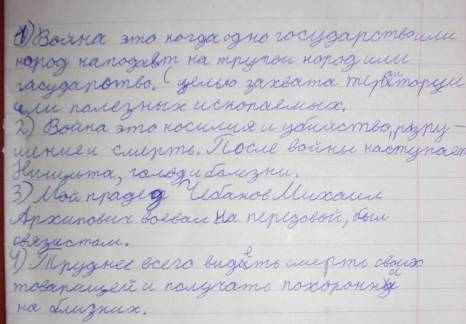 1) Война это когда одно государство или
народ нападает на другой народ или
государство. С целью захвата территории
или полезных ископаемых.
2) Война это носилия и убийство, разру-
шение и смерть. После войны наступает
Нищита, голод и болизни.
3) Мой прадед Чебанов Михаил
Архипович воевал на передовой, был
связистом.
4) Труднее всего видеть смерть своих
товарищей и получать похоронки
на близких.